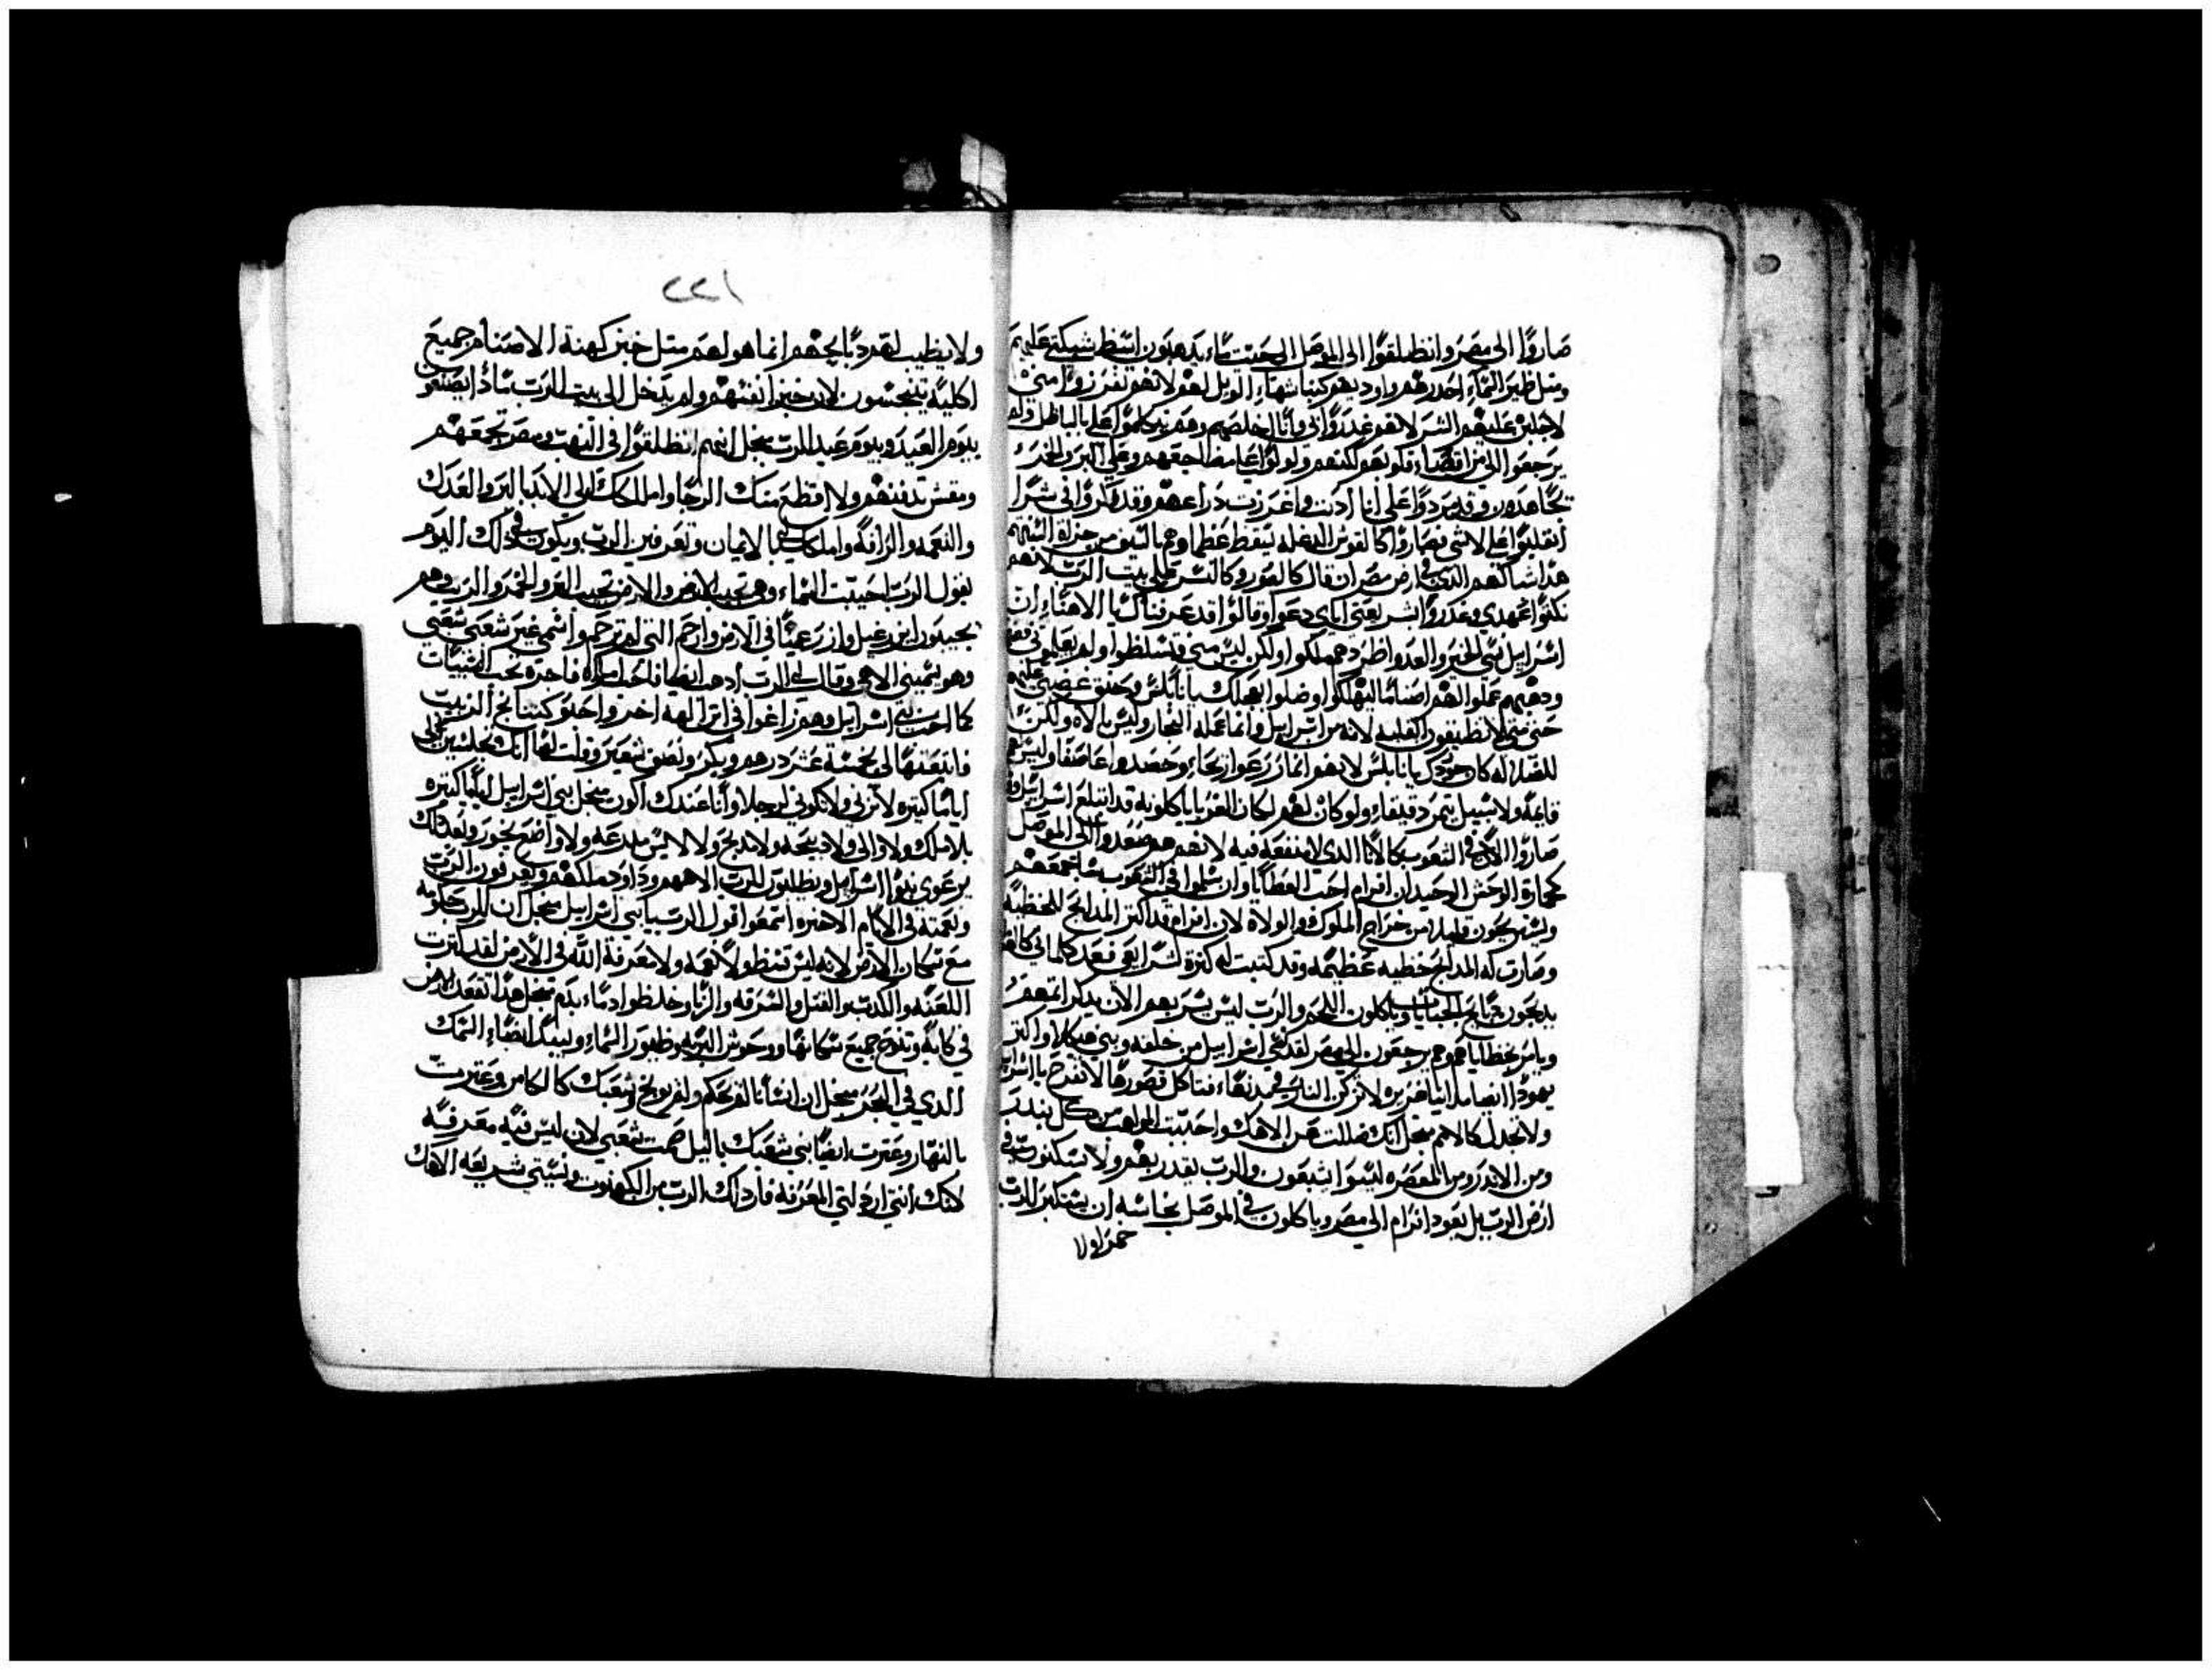 صاروا الى مصر وانطلقوا الى الموصل الى حيث ما يدهبون ابسط شبكتي عليهم
ومثل طير السماء احدرهم واوديهم كنبا شهاء الويل لهم لانهم نفرزوا مني
لاجلبن عليهم الشر لانهم غدروا بي وانا اخلصهم وهم تكلموا علي بالباطل ولم
يرجعوا الي من اقصاء قلوبهم لكنهم ولولوا على مضاجعهم وعلى البر والخمر
تجاهدون وقد مردوا علي انا ادبت واعززت دراعهم وقد فكروا في شرا
انقلبوا على لا شي فصاروا كالقوس الدغله تسقط عظماوهم بالسيف من جزلة السنتهم
هدا شاكلهم الدي في ارض مصر ان قال كالقور وكالنسر على بيت الرب لانهم
نكتوا عهدي وغدروا بشريعتي اياي دعوا وقالوا قد عرفناك يا الاهنا ان
اسرايل نسي الخير والعدو اطردهم ملكوا ولكن ليس مني فتسلطوا ولم يعلموني فضتهم
ودهبهم عملوا لهم اصناما ليهلكوا وضلوا بعجلك يا نابلس وحنق غضبي عليهم
حتى متى لا تطيقون الفلبه لانه من اسرايل وانما عمله النجار وليس بالاه ولكن
للضلاله كان عجلك يا نابلس لانهم انما زرعوا ريحاء وحصدوا عاصفا وليس لهم
قايمه ولا سبيل يتمر دقيقاء ولو كان لهم لكان الغربا ياكلونه قد ابتلع اسرايل وقد
صاروا الان في الشعوب كالانا الدي لا منفعه فيه لانهم هم صعدوا الى الموصل
كحمارة الوحش الوحيد ان افرام احب العطايا وان سلموا في الشعوب ساجمعهم
ويستريحون قليلا من خراج الملوك والولاة لان افرام قد اكثر المدابح للخطيه
وصارت له المدابح خطيه عظيمه وقد كتبت له كثرة شرايعي فعد كلماتي كالغربا
يدبحون دبايح الجبايات وياكلون اللحم والرب ليس يسر بهم الان يدكر اتمهم
ويامر بخطاياهم وهم يرجعون الى مصر لقد نسي اسرايل من خلقه وبني هيكلا واكثر
يهودا ايضا مداينا غزيره لاتركن النار في مدنهاء فتاكل قصورها لا تفرح يا اسرايل
ولا تجدل كالامم بنجل انك ضللت عن الاهك واحببت المواهب من كل بندر
ومن الاندر ومن المعصره ليسوا يشبعون والرب يقدر بهم ولا يسكنون في
ارض الرب بل يعود افرام الى مصر وياكلون في الموصل نجاسه ان يستكبر للرب
خمرا ولا
٢٢١
ولا يطيب لهم دبايحهم انما هو لهم مثل خبز كهنة الاصنام جميع
اكليه يتنجسون لان خبز انفسهم ولم يدخل الى بيت الرب مادا يصنعون
بيوم العيد وبيوم عيد الرب بنجل انهم انطلقوا في النهب ومصر تجمعهم
ومقس تدفنهم ولا اقطع منك الرجا واملكك لي الى الابد بالبر والعدك
والنعمه والرافه واملكك لي بالايمان وتعرفين الرب ويكون في دلك اليوم
يقول الرب احببت السماء وهي تجيب الارض والارض تجيب القمح والخمر والزيت وهم
يجيبون ايزرعيل وازرعها في الارض وارحم التي لم ترحم واسمي غير شعبي شعبي
وهو يسميني الاهي وقال لي الرب ادهب ايضا فاحب امراة فاجرة تحب السيات
كما احب بني اسرايل وهم زاغوا في اثر الهة اخر واحبو كبنا بخ الزبيب
فابتعتها لي بخمسة عشر درهم وبكر ونصف شعير وقلت لها انك تجلسين لي
اياما كثيره لا تزني ولا تكوني لرجل وانا عندك اكون بنجل بني اسرايل اياما كثيره
بلا ملك ولا والي ولا دبيحه ولا مدبح ولا لابس مدرعه ولا واضع بخور وبعد دلك
يرعوي بنوا اسرايل ويطلبون للرب الاههم وداود ملكهم ويعرفون الرب
ونعمته في الايام الاخيره اسمعوا قول الرب يا بني اسرايل بنجل ان للرب حكومه
مع سكان الارض لانه ليس قسط ولا نعمه ولا معرفة الله في الارض لقد كثرت
اللعنه والكدب والقتل والسرقه والزنا وخلطوا دماء بدم بنجل هدا تقعد الارض
في كابه وتنوح جميع سكانها ووحوش البريه وطيور السماء ولبيد ايضاء السمك
الدي في البحر بنجل ان انسانا لم يحكم ولم يوبخ وشعبك كالكاهن وعترت
بالنهار وعترت ايضا بني شعبك بالليل صمت شعبي لان ليس فيه معرفه
لانك انتي اردلتي المعرفه فاردلك الرب من الكهنوت ونسيتي شريعه الاهك